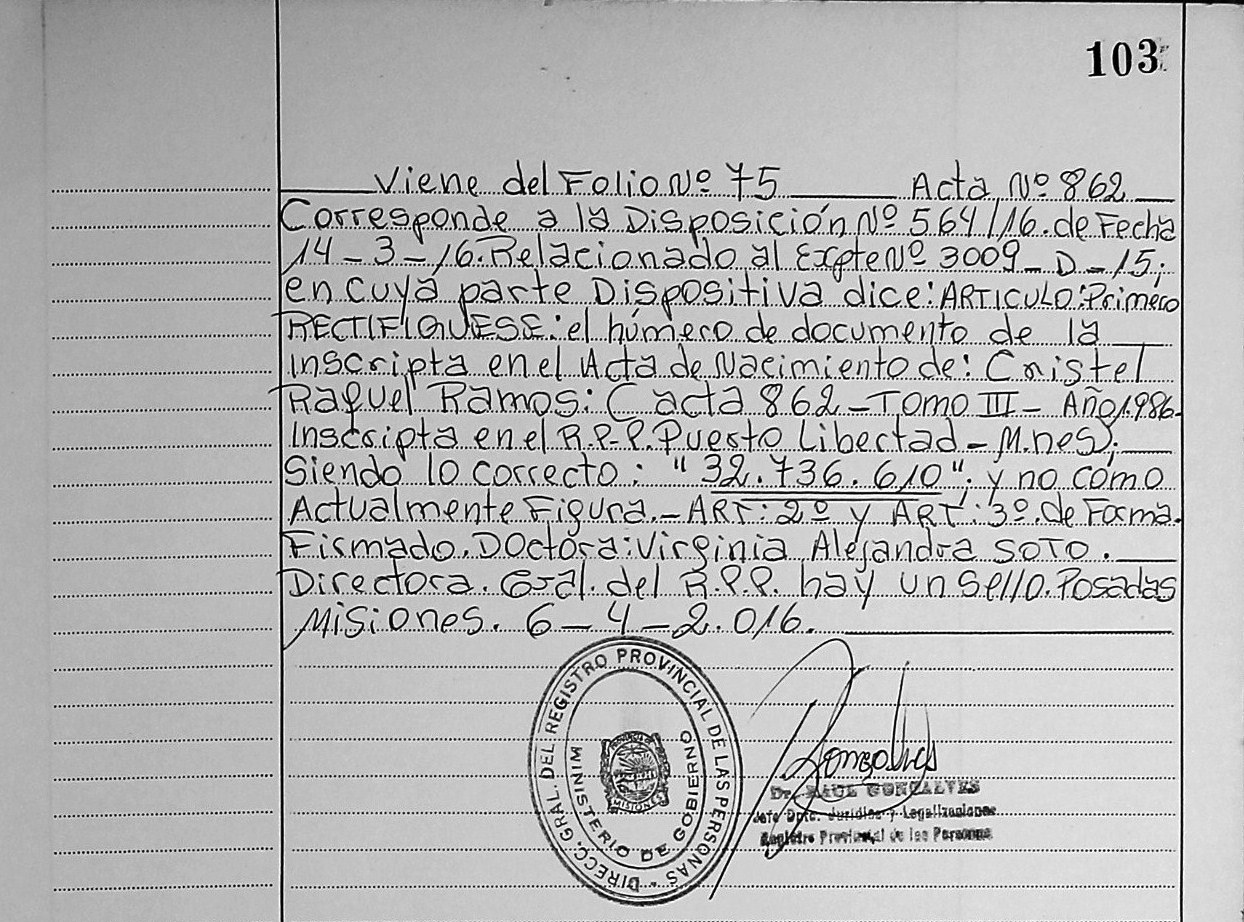 103
Viene del Folio Nº 75 Acta Nº 862
Corresponde a la Disposición Nº 564/16. de Fecha
14-3-16. Relacionado al Expte Nº 3009-D-15;
en cuya parte Dispositiva dice: ARTICULO: Primero
RECTIFIQUESE: el número de documento de la
inscripta en el Acta de Nacimiento de: Cristel
Raquel Ramos: (acta 862-Tomo III- Año 1.986-
Inscripta en el R.P.P. Puesto Libertad - M.nes);
Siendo lo correcto: "32.736.610"; y no como
Actualmente Figura.- ART: 2º y ART: 3º. de Forma.
Firmado. Doctora: Virginia Alejandra SOTO.
Directora. Gral. del R.P.P. hay un sello. Posadas
Misiones. 6-4-2.016.
DIRECC. GRAL. DEL REGISTRO PROVINCIAL DE LAS PERSONAS
MINISTERIO DE GOBIERNO
MISIONES
Gonzalves
Dr. RAUL GONÇALVES
Jefe Dpto. Jurídico y Legalizaciones
Registro Provincial de las Personas